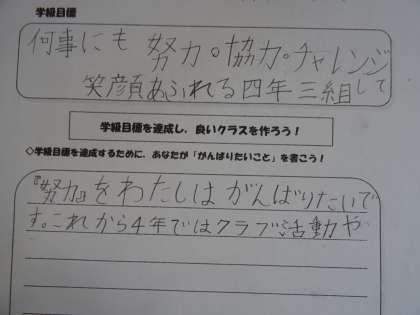 学級目標
何事にも 努力。協力。チャレンジして
笑顔あふれる四年三組
学級目標を達成し、良いクラスを作ろう！
◇学級目標を達成するために、あなたが「がんばりたいこと」を書こう！
『努力』をわたしはがんばりたいで
す。これから4年ではクラブ活動や